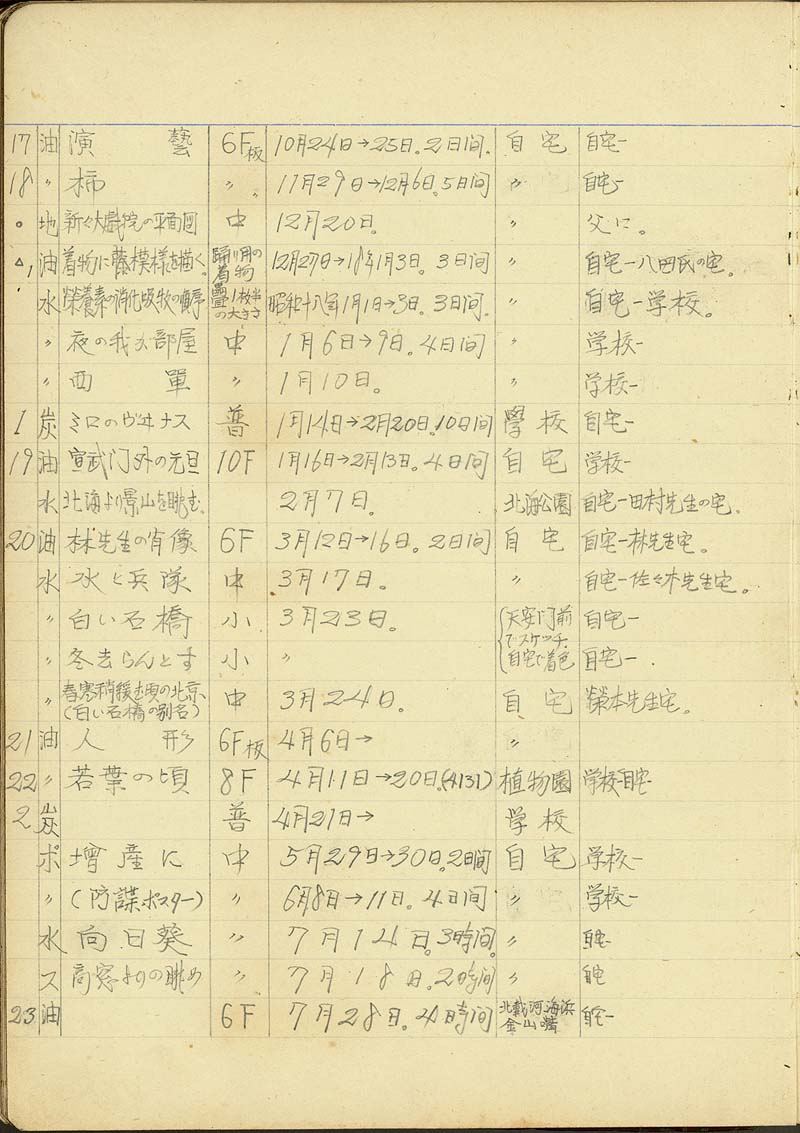 17 油 演藝 6F板 10月24日→25日。2日间。 自宅 自宅-
18 〃 柿 〃 11月29日→12月6日。5日间 〃 自宅-
。 地 新々大戯院の平面図 中 12月20日。 〃 父に。
△, 油 着物に藤模様を描く。 踊り用の着物 12月27日→18年1月3日。3日间 〃 自宅-八田氏の宅。
水 栄養素の消化吸收の順序 疊1枚半の大きさ 昭和十八年1月1日→3日。3日间。 〃 自宅-学校。
〃 夜の我が部屋 中 1月6日→9日。4日间 〃 学校-
〃 西單 〃 1月10日。 〃 学校-
1 炭 ミロのヴヰナス 普 1月14日→2月20日。10日间 學校 自宅-
19 油 宣武门外の元旦 10F 1月16日→2月13日。4日间 自宅 学校-
水 北海より景山を眺む。 2月7日。 北海公園 自宅-田村先生の宅。
20 油 林先生の肖像 6F 3月12日→16日。2日间 自宅 自宅-林先生宅。
水 水と兵隊 中 3月17日。 〃 自宅-佐々木先生宅。
〃 白い石橋 小 3月23日。 天安门前でスケッチ。自宅で着色 自宅-
〃 冬去らんとす 小 〃 自宅-
〃 春寒稍緩む頃の北京、(白い石橋の别名) 中 3月24日。 自宅 榮本先生宅。
21 油 人形 6F板 4月6日→ 〃
22 〃 若葉の頃 8F 4月11日→20日。(4131) 植物園 学校-自宅-
2 炭 普 4月21日→ 学校
ポ 增産に 中 5月29日→30日。2日间 自宅 学校-
〃 (防諜ポスター) 〃 6月8日→11日。4日间 〃 学校-
水 向日葵 〃 7月14日。3時间。 〃 自宅-
ス 高窓よりの眺め 〃 7月18日。2時间 〃 自宅
23 油 6F 7月28日。4時间 北戴河海浜金山嘴 自宅-